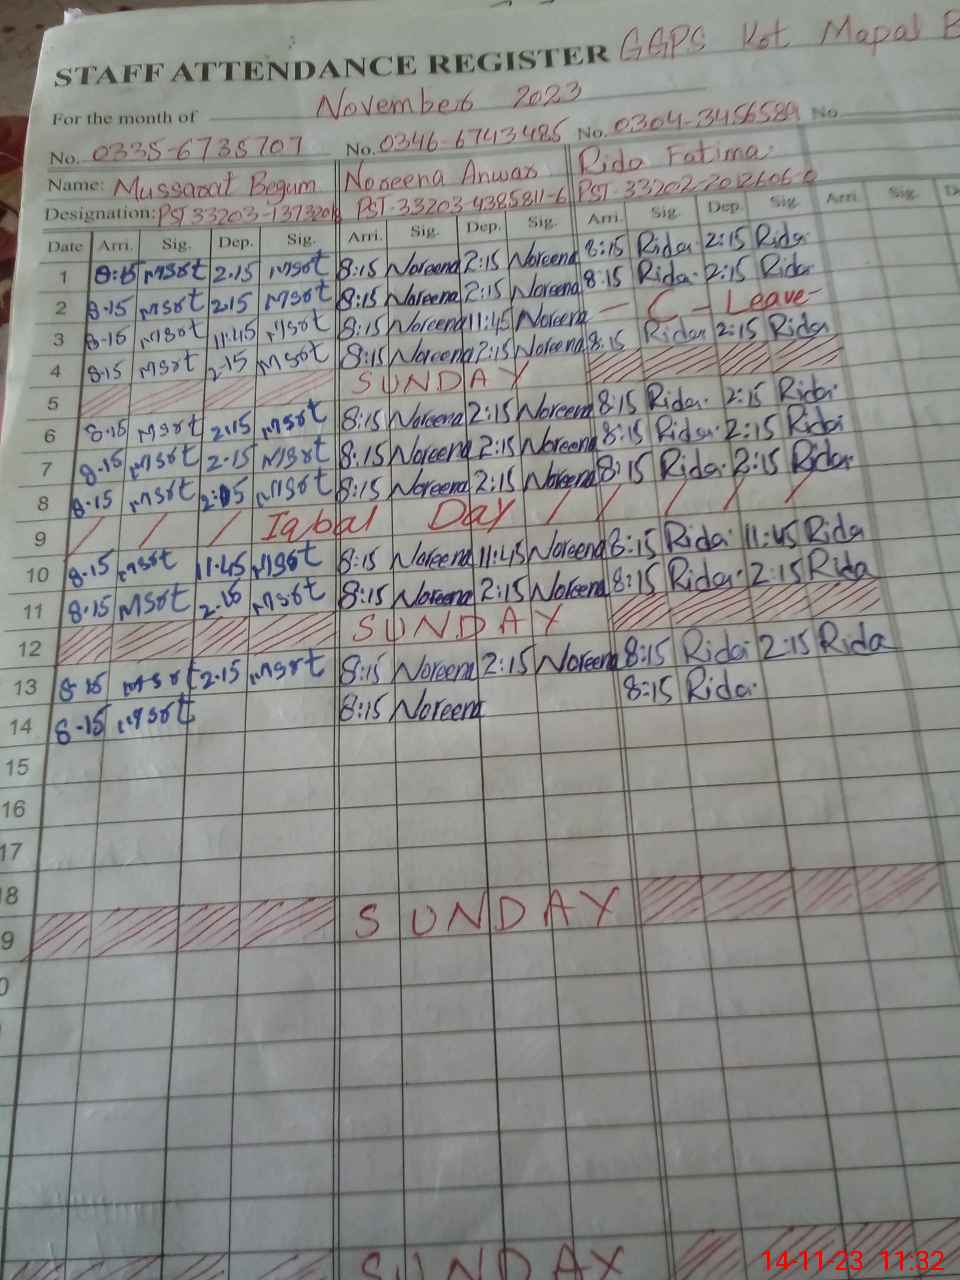 STAFF ATTENDANCE REGISTER GGPS Kot Mapal
For the month of November 2023
No. 0335-6735707 No. 0346-6743485 No. 0304-3456589 No
Name: Mussarat Begum Noreena Anwar Rida Fatima
Designation: PST 33203-1373201 PST-33203-4385811-6 PST-33202-2012606-0
Date Arri. Sig. Dep. Sig. Arri. Sig. Dep. Sig. Arri. Sig. Dep. Sig. Arri. Sig. D
1 8:15 Msrt 2.15 Msrt 8:15 Noreena 2:15 Noreena 8:15 Rida 2:15 Rida
2 8.15 Msrt 2.15 Msrt 8:15 Noreena 2:15 Noreena 8:15 Rida 2:15 Rida
3 8-15 Msrt 11.45 Msrt 8:15 Noreena 11:45 Noreena - C - Leave-
4 8.15 Msrt 2.15 Msrt 8:15 Noreena 2:15 Noreena 8:15 Rida 2:15 Rida
5 SUNDAY
6 8.15 Msrt 2.15 Msrt 8:15 Noreena 2:15 Noreena 8:15 Rida 2:15 Rida
7 8.15 Msrt 2.15 Msrt 8:15 Noreena 2:15 Noreena 8:15 Rida 2:15 Rida
8 8.15 Msrt 2:15 Msrt 8:15 Noreena 2:15 Noreena 8:15 Rida 2:15 Rida
9 Iqbal Day
10 8.15 Msrt 11.45 Msrt 8:15 Noreena 11:45 Noreena 8:15 Rida 11:45 Rida
11 8.15 Msrt 2.15 Msrt 8:15 Noreena 2:15 Noreena 8:15 Rida 2:15 Rida
12 SUNDAY
13 8.15 Msrt 2.15 Msrt 8:15 Noreena 2:15 Noreena 8:15 Rida 2:15 Rida
14 8-15 Msrt 8:15 Noreena 8:15 Rida
15
16
17
8
9 SUNDAY
0
SUNDAY
14-11-23 11:32